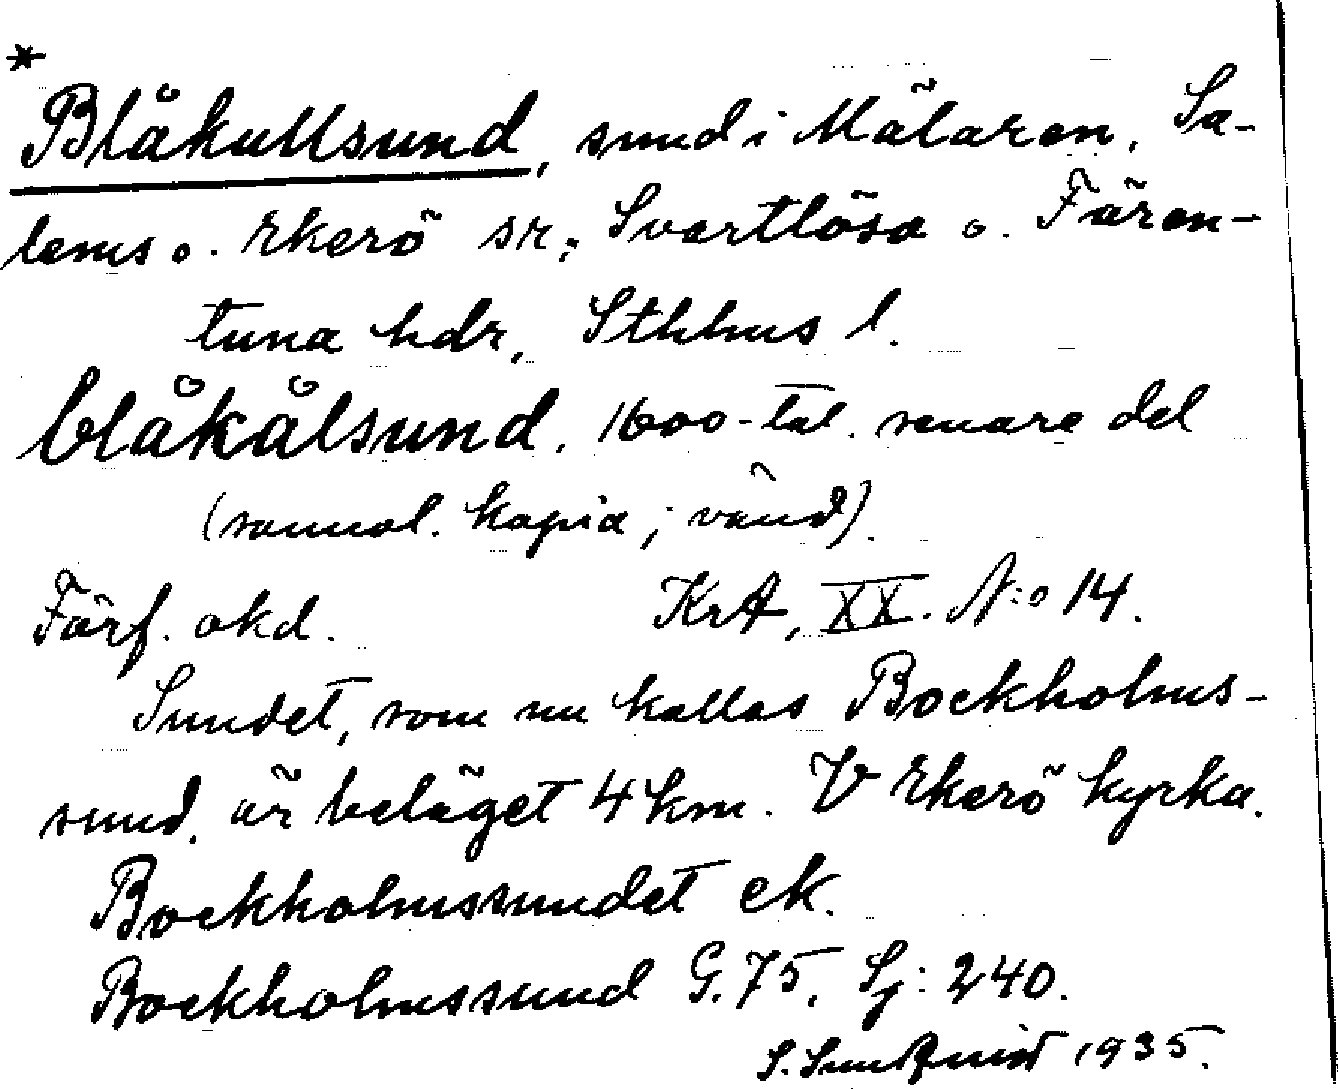 *
Blåkullsund, sund i Mälaren, Sa-
lems o. Ekerö sr, Svartlösa o. Fären-
tuna hdr, Sthlms l.
blåkålsund. 1600-tal. senare del
(sannol. kopia; vänd).
Förf. okd. KrA, XX. N:o 14.
Sundet, som nu kallas Bockholms-
sund, är beläget 4 km. V Ekerö kyrka.
Bockholmssundet ek.
Bockholmssund G. 75, Sj: 240.
S. Sundqvist 1935.